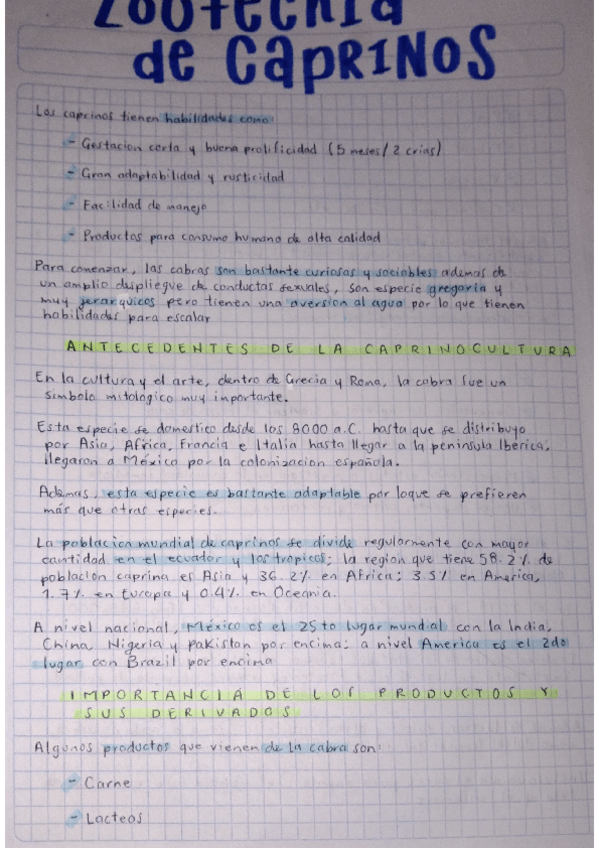 Zootecnia
de CAPRINOS
Los caprinos tienen habilidades como:
- Gestacion corta y buena prolificidad (5 meses/ 2 crias)
- Gran adaptabilidad y rusticidad
- Facilidad de manejo
- Productos para consumo humano de alta calidad
Para comenzar, las cabras son bastante curiosas y sociables ademas de
un amplio despliegue de conductas sexuales, son especie gregaria y
muy jerarquicos pero tienen una aversion al agua por lo que tienen
habilidades para escalar
ANTECEDENTES DE LA CAPRINOCULTURA
En la cultura y el arte, dentro de Grecia y Roma, la cabra fue un
simbolo mitologico muy importante.
Esta especie se domestico desde los 8000 a.C. hasta que se distribuyo
por Asia, Africa, Francia e Italia hasta llegar a la peninsula Iberica,
llegaron a México por la colonizacion española.
Ademas, esta especie es bastante adaptable por loque se prefieren
más que otras especies.
La poblacion mundial de caprinos se divide regularmente con mayor
cantidad en el ecuador y los tropicos; la region que tiene 58.2% de
poblacion caprina es Asia y 36.2% en Africa; 3.5% en America,
1.7% en Europa y 0.4% en Oceania.
A nivel nacional, México es el 25to lugar mundial con la India,
China, Nigeria y Pakistan por encima; a nivel America es el 2do
lugar con Brazil por encima
IMPORTANCIA DE LOS PRODUCTOS Y
SUS DERIVADOS
Algunos productos que vienen de la cabra son:
- Carne
- Lacteos